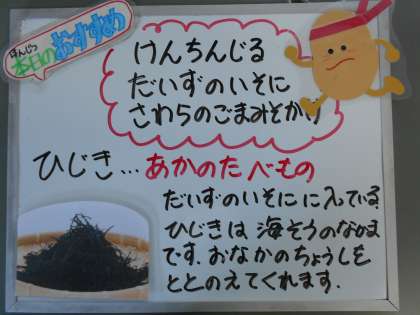 ほんじつ
本日のおすすめ
けんちんじる
だいずのいそに
さわらのごまみそかけ
ひじき…あかのたべもの
だいずのいそにに入っている
ひじきは海そうのなかま
です.おなかのちょうしを
ととのえてくれます.